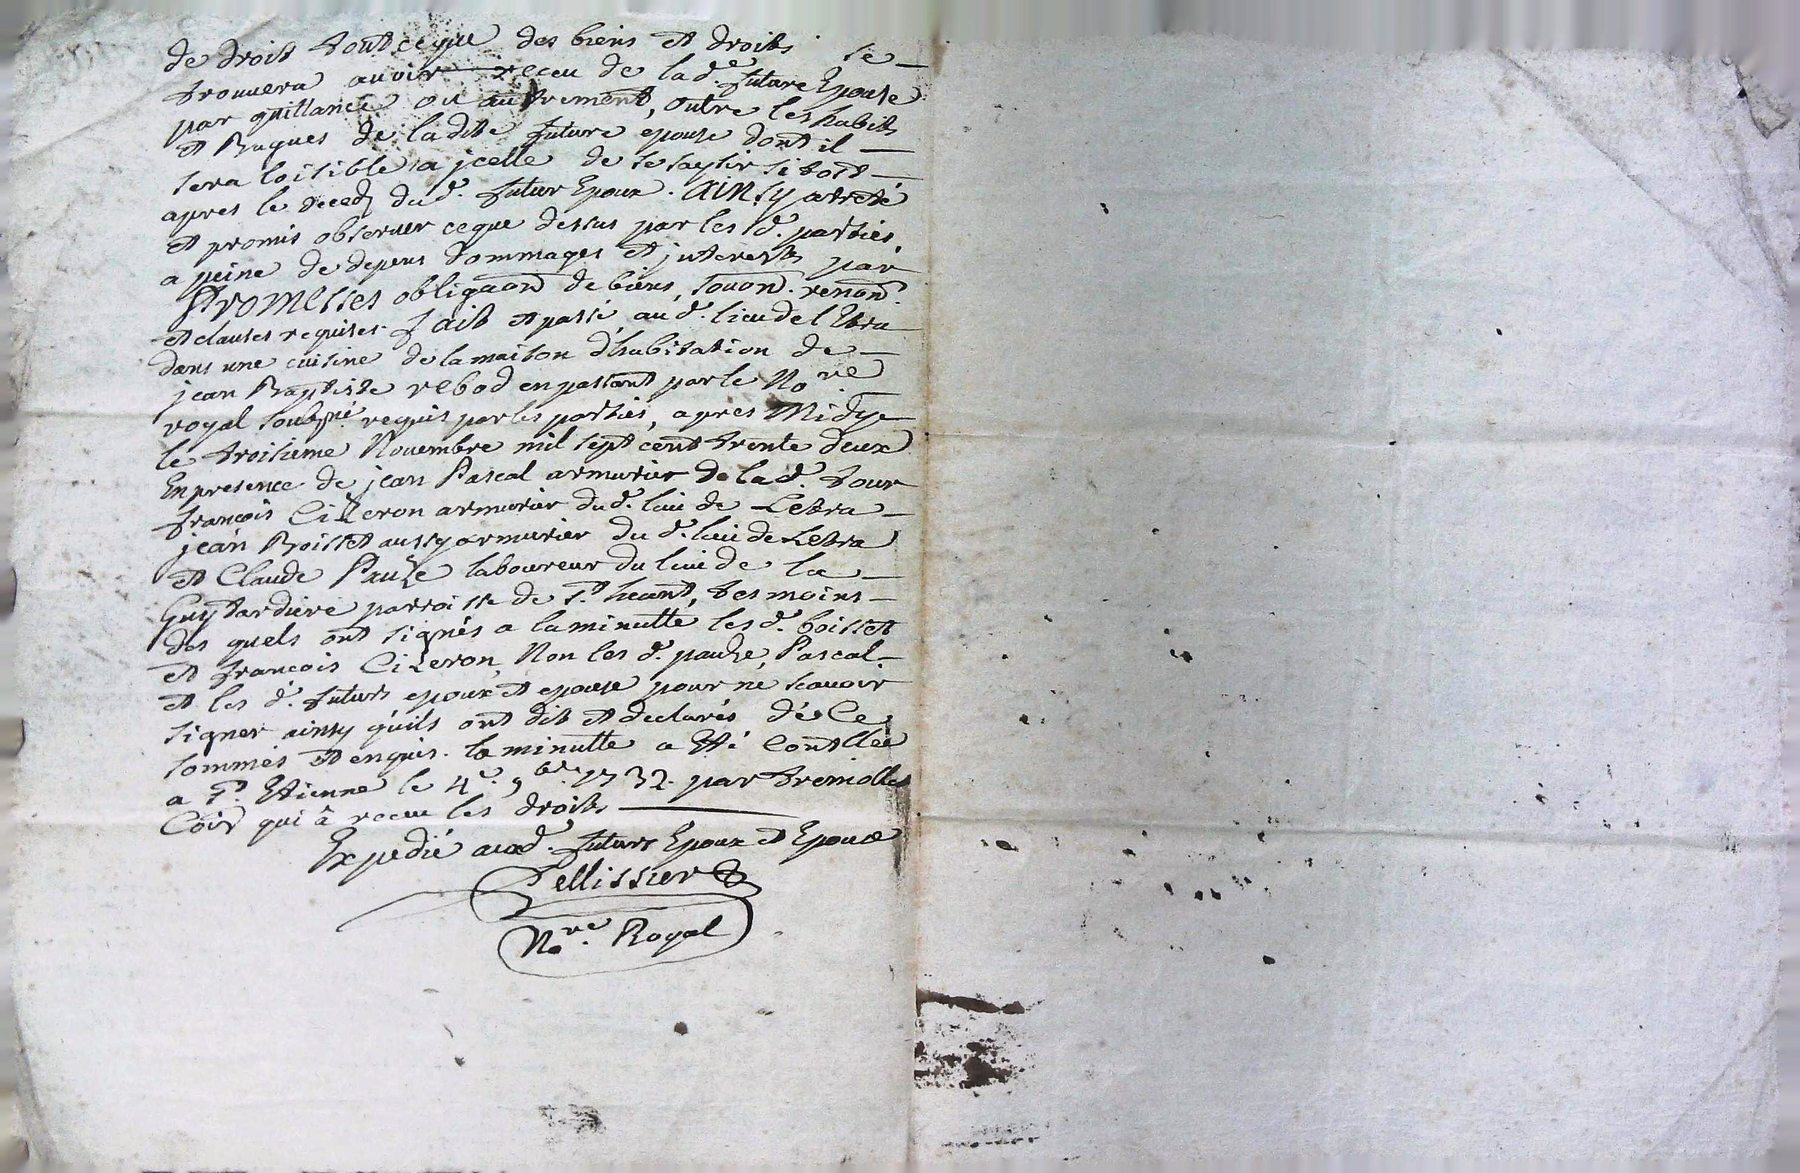 de droit tout ce que des biens et droits se
trouuera auoir receu de lad.e future Epouse
par quittance ou autrement, outre les habits
et Bagues de ladite future epouse dont il
sera loisible a jcelle de se saysir si tost
apres le deced dud. futur Epoux. Ainsy arreté
et promis obseruer ce que dessus par les d. parties,
a peine de depens dommages et jnterests par
Promesses obligaon de biens, soumon. renon.
et clauses requises. fait et passé aud. lieu de l'Etra
dans une cuisine de la maison d'habitation de
jean Baptiste rebod en passant par le No.re
royal soubsné requis par les parties, apres Midye
le troisieme Nouembre mil sept cent trente deux
En presence de jean Pascal armurier de lad. tour
françois Cizeron armurier dud. lieu de Letra
jean Boisset aussy armurier du d. lieu de Letra
et Claude Pauze laboureur du lieu de la
Guytardiere parroisse de St. heant, tesmoins
des quels ont signés a la minutte les d. boisset
et françois Cizeron, Non les d. pauze, Pascal
et les d. futurs epoux et epouse pour ne scauoir
signer ainsy qu'ils ont dit et declarés de ce
sommés et enquis. la minutte a Eté Contllée
a St. Etienne le 4e. 9bre. 1732. par tremolles
Coir qui â receu les droits
Expedié aud. futurs Epoux et Epouse
Pellissier
No.re Royal